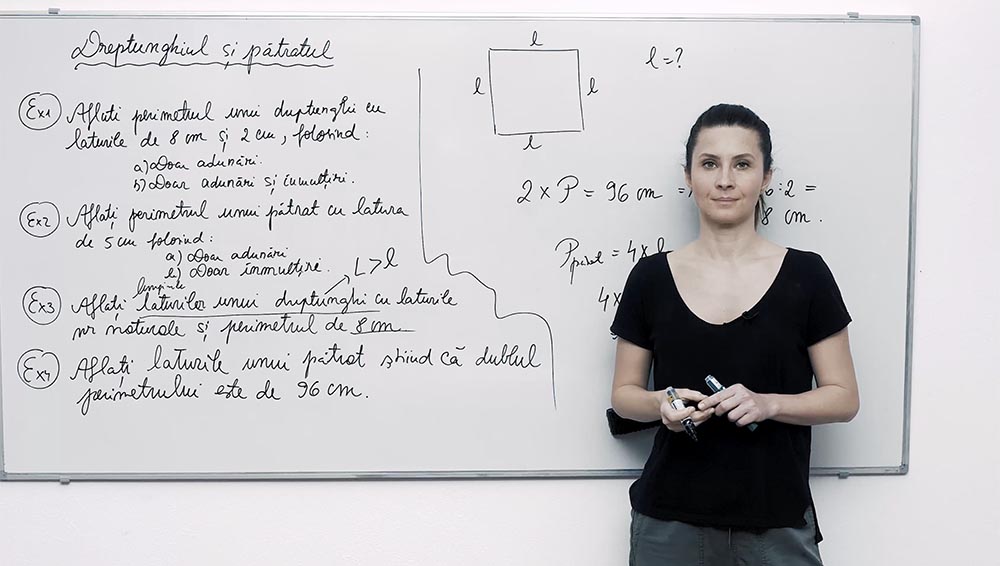 Dreptunghiul și pătratul
Ex1 Aflați perimetrul unui dreptunghi cu
laturile de 8 cm și 2 cm, folosind:
a) Doar adunări.
b) Doar adunări și înmulțiri.
Ex2 Aflați perimetrul unui pătrat cu latura
de 5 cm folosind:
a) Doar adunări
b) Doar înmulțire.
L > l
Ex3 Aflați laturilor unui dreptunghi cu laturile
nr naturale și perimetrul de 8 cm
Ex4 Aflați laturile unui pătrat știind că dublul
perimetrului este de 96 cm.
l
l
l
l
l = ?
2 x P = 96 cm = 6 : 2 =
8 cm.
P pătrat = 4 x l
4 x